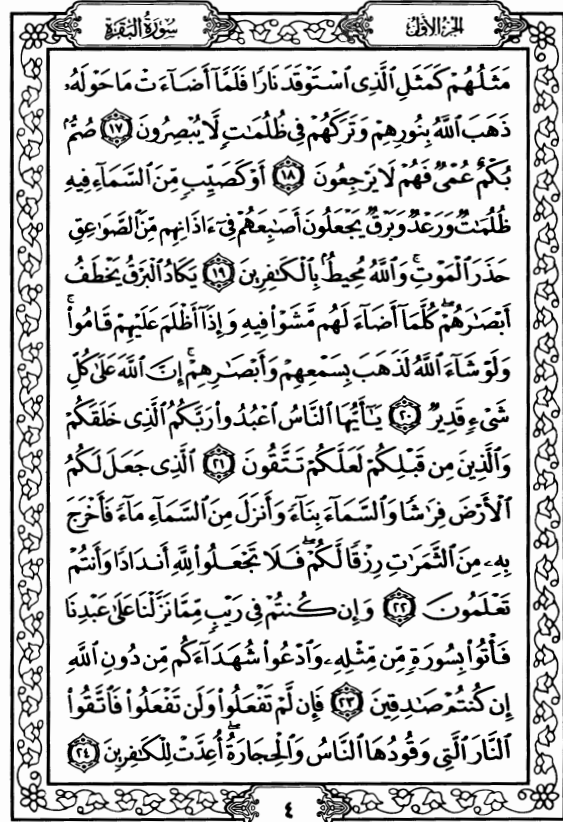 سُورَةُ البَقَرَةِ
الجُزءُ الأوّلُ
مَثَلُهُمْ كَمَثَلِ ٱلَّذِى ٱسْتَوْقَدَ نَارًا فَلَمَّآ أَضَآءَتْ مَا حَوْلَهُۥ
ذَهَبَ ٱللَّهُ بِنُورِهِمْ وَتَرَكَهُمْ فِى ظُلُمَٰتٍ لَّا يُبْصِرُونَ ١٧ صُمٌّۢ
بُكْمٌ عُمْىٌ فَهُمْ لَا يَرْجِعُونَ ١٨ أَوْ كَصَيِّبٍ مِّنَ ٱلسَّمَآءِ فِيهِ
ظُلُمَٰتٌ وَرَعْدٌ وَبَرْقٌ يَجْعَلُونَ أَصَٰبِعَهُمْ فِىٓ ءَاذَانِهِم مِّنَ ٱلصَّوَٰعِقِ
حَذَرَ ٱلْمَوْتِ ۚ وَٱللَّهُ مُحِيطٌۢ بِٱلْكَٰفِرِينَ ١٩ يَكَادُ ٱلْبَرْقُ يَخْطَفُ
أَبْصَٰرَهُمْ ۖ كُلَّمَآ أَضَآءَ لَهُم مَّشَوْا۟ فِيهِ وَإِذَآ أَظْلَمَ عَلَيْهِمْ قَامُوا۟ ۚ
وَلَوْ شَآءَ ٱللَّهُ لَذَهَبَ بِسَمْعِهِمْ وَأَبْصَٰرِهِمْ ۚ إِنَّ ٱللَّهَ عَلَىٰ كُلِّ
شَىْءٍ قَدِيرٌ ٢٠ يَٰٓأَيُّهَا ٱلنَّاسُ ٱعْبُدُوا۟ رَبَّكُمُ ٱلَّذِى خَلَقَكُمْ
وَٱلَّذِينَ مِن قَبْلِكُمْ لَعَلَّكُمْ تَتَّقُونَ ٢١ ٱلَّذِى جَعَلَ لَكُمُ
ٱلْأَرْضَ فِرَٰشًا وَٱلسَّمَآءَ بِنَآءً وَأَنزَلَ مِنَ ٱلسَّمَآءِ مَآءً فَأَخْرَجَ
بِهِۦ مِنَ ٱلثَّمَرَٰتِ رِزْقًا لَّكُمْ ۖ فَلَا تَجْعَلُوا۟ لِلَّهِ أَندَادًا وَأَنتُمْ
تَعْلَمُونَ ٢٢ وَإِن كُنتُمْ فِى رَيْبٍ مِّمَّا نَزَّلْنَا عَلَىٰ عَبْدِنَا
فَأْتُوا۟ بِسُورَةٍ مِّن مِّثْلِهِۦ وَٱدْعُوا۟ شُهَدَآءَكُم مِّن دُونِ ٱللَّهِ
إِن كُنتُمْ صَٰدِقِينَ ٢٣ فَإِن لَّمْ تَفْعَلُوا۟ وَلَن تَفْعَلُوا۟ فَٱتَّقُوا۟
ٱلنَّارَ ٱلَّتِى وَقُودُهَا ٱلنَّاسُ وَٱلْحِجَارَةُ ۖ أُعِدَّتْ لِلْكَٰفِرِينَ ٢٤
٤